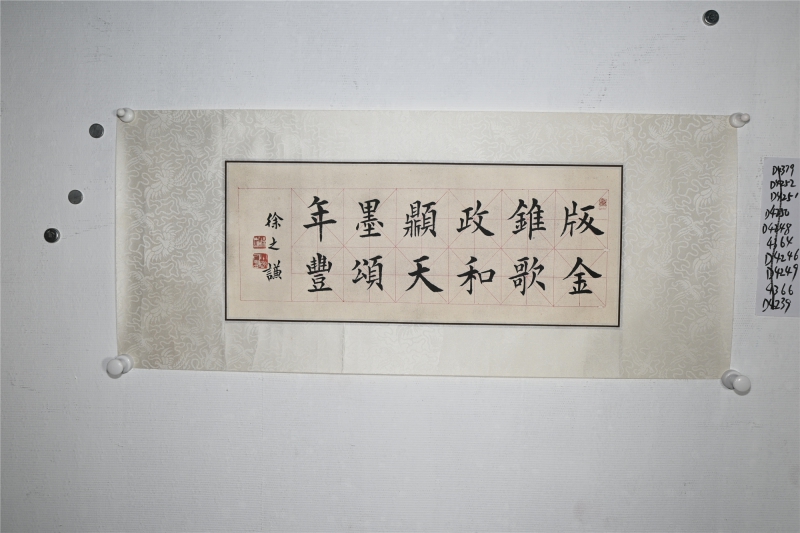 版金
錐歌
政和
顯天
墨頌
年豐
徐之謙
D4379
D4252
D4251
D4250
D4248
4364
D4246
D4249
4366
D4239